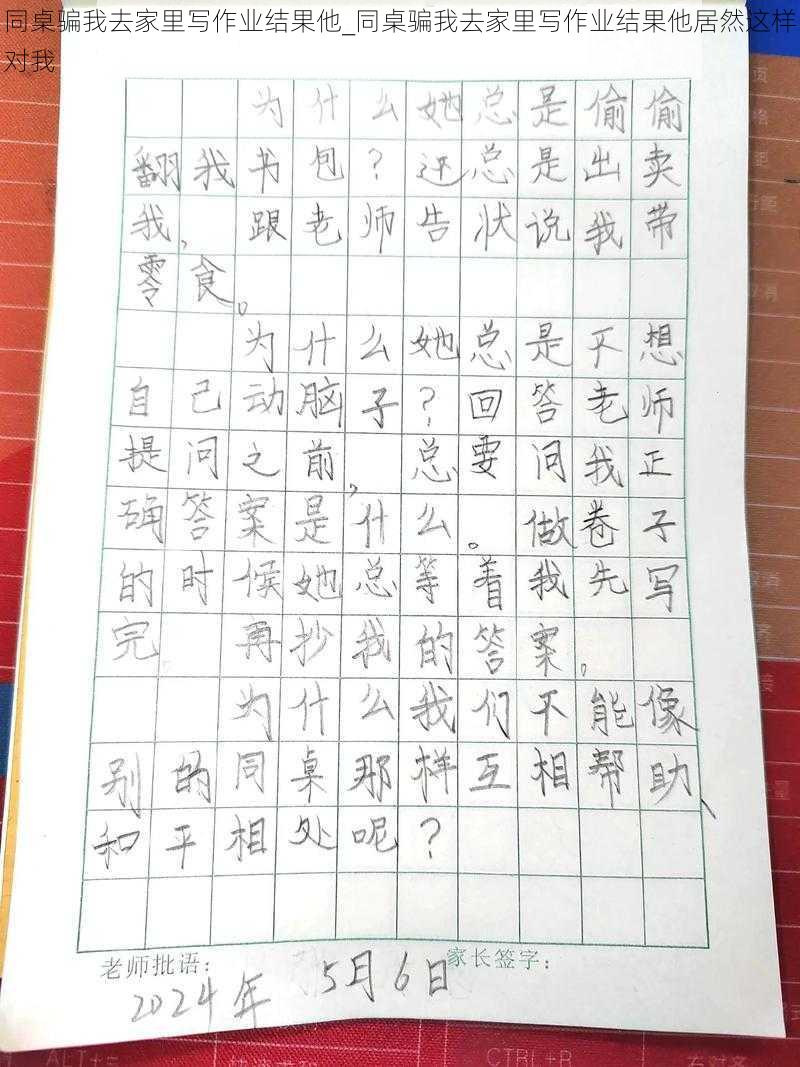 同桌骗我去家里写作业结果他_同桌骗我去家里写作业结果他居然这样
对我
为什么她总是偷偷
翻我书包？还总是出卖
我，跟老师告状说我带
零食。
为什么她总是不想
自己动脑子？回答老师
提问之前，总要问我正
确答案是什么。做卷子
的时候她总等着我先写
完 再抄我的答案。
为什么我们不能像
别的同桌那样互相帮助、
和平相处呢？
老师批语： 家长签字：
2024年 5月6日
ALT+=
CTRL+R
右对齐